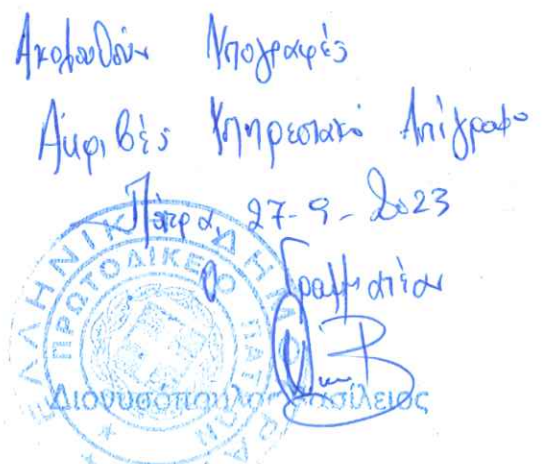 Ακολουθούν Υπογραφές
Ακριβές Υπηρεσιακό Αντίγραφο
Πάτρα, 27-9-2023
Ο Γραμματέας
ΕΛΛΗΝΙΚΗ ΔΗΜΟΚΡΑΤΙΑ
ΠΡΩΤΟΔΙΚΕΙΟ ΠΑΤΡΩΝ
Διονυσόπουλος Βασίλειος